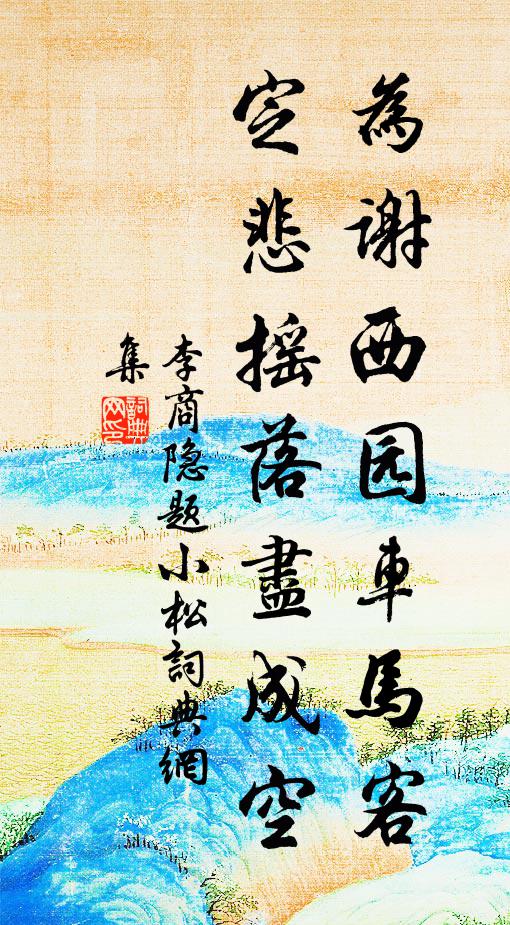 為謝西园車馬客
定悲摇落盡成空
李商隐题小松詞典網
集
詞典網印